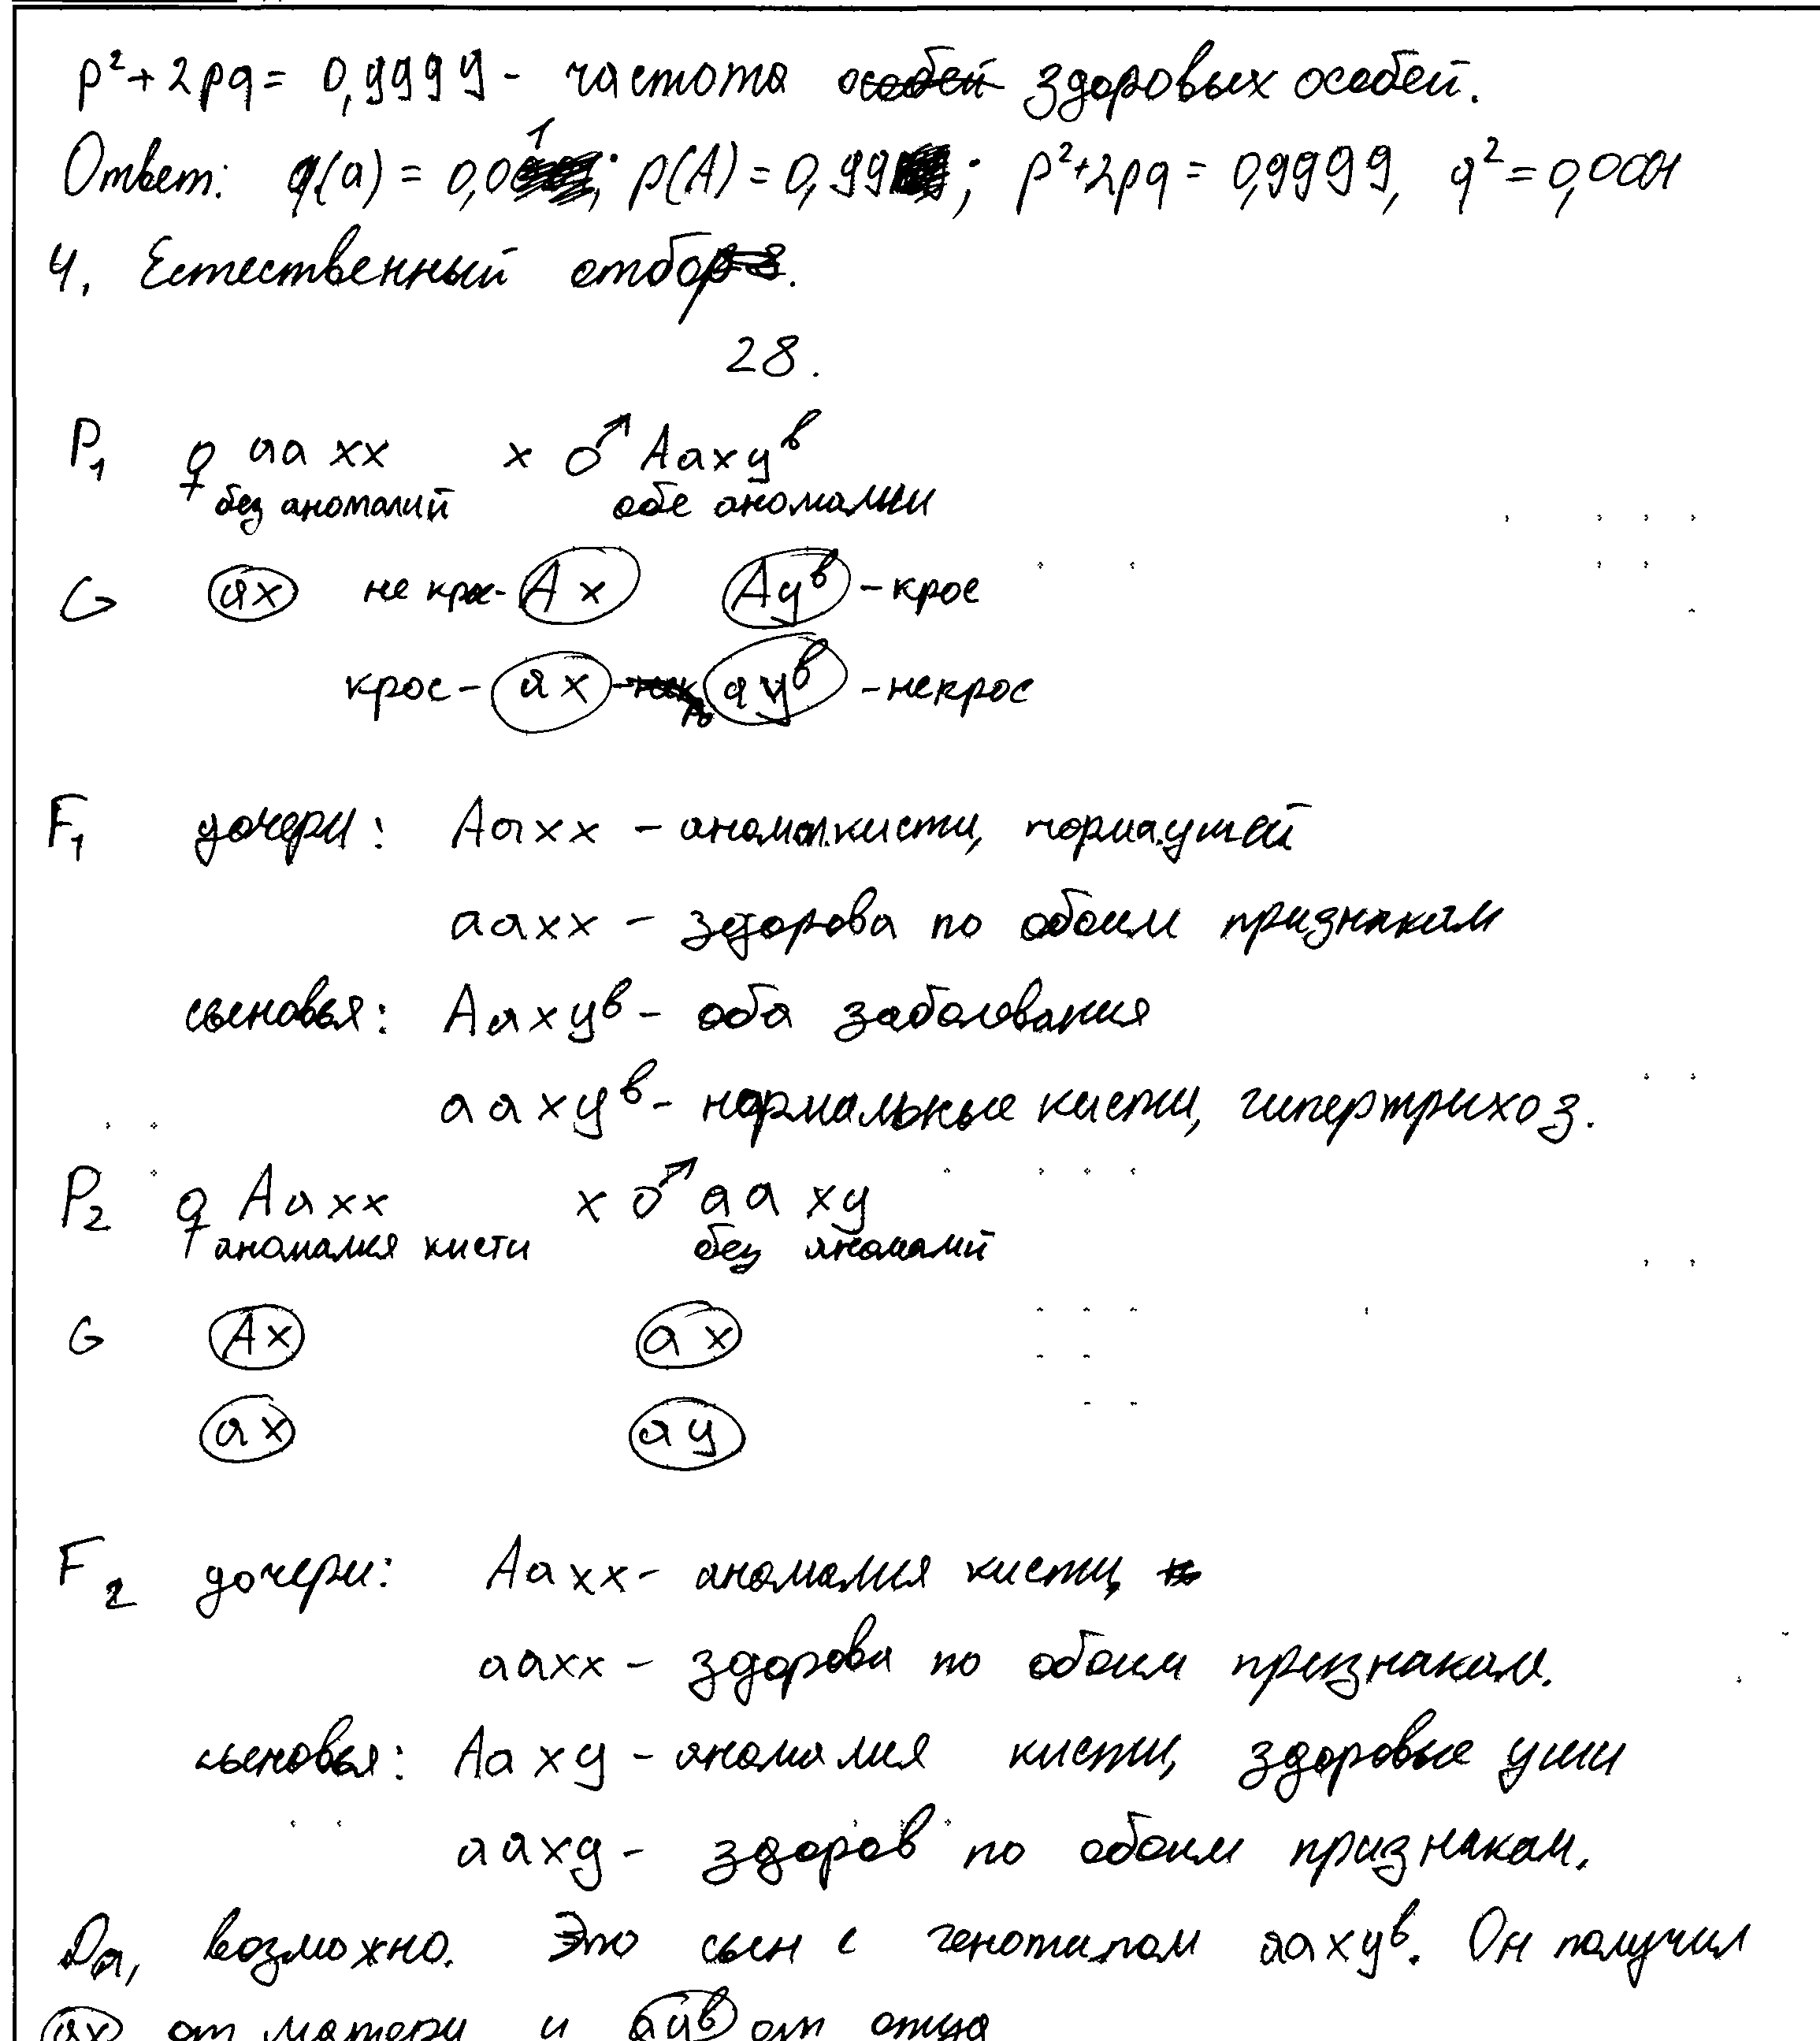 p² + 2pq = 0,9999 - частота особей здоровых особей.
Ответ: q(a) = 0,01; p(A) = 0,99; p²+2pq = 0,9999, q² = 0,0001
4. Естественный отбор.
28.
P₁ ♀ aa xx × ♂ Aaxyᵇ
без аномалий обе аномалии
G ax не крос- Ax Ayᵇ - крос
крос - ax ayᵇ - некрос
F₁ дочери: Aaxx - аномал.кисти, норма.ушей
aaxx - здорова по обоим признакам
сыновья: Aaxyᵇ - оба заболевания
aaxyᵇ - нормальные кисти, гипертрихоз.
P₂ ♀ Aaxx × ♂ aa xy
аномалия кисти без аномалий
G Ax ax
ax ay
F₂ дочери: Aaxx - аномалия кисти,
aaxx - здорова по обоим признакам.
сыновья: Aaxy - аномалия кисти, здоровые уши
aaxy - здоров по обоим признакам.
Да, возможно. Это сын с генотипом aaxyᵇ. Он получил
ax от матери и ayᵇ от отца